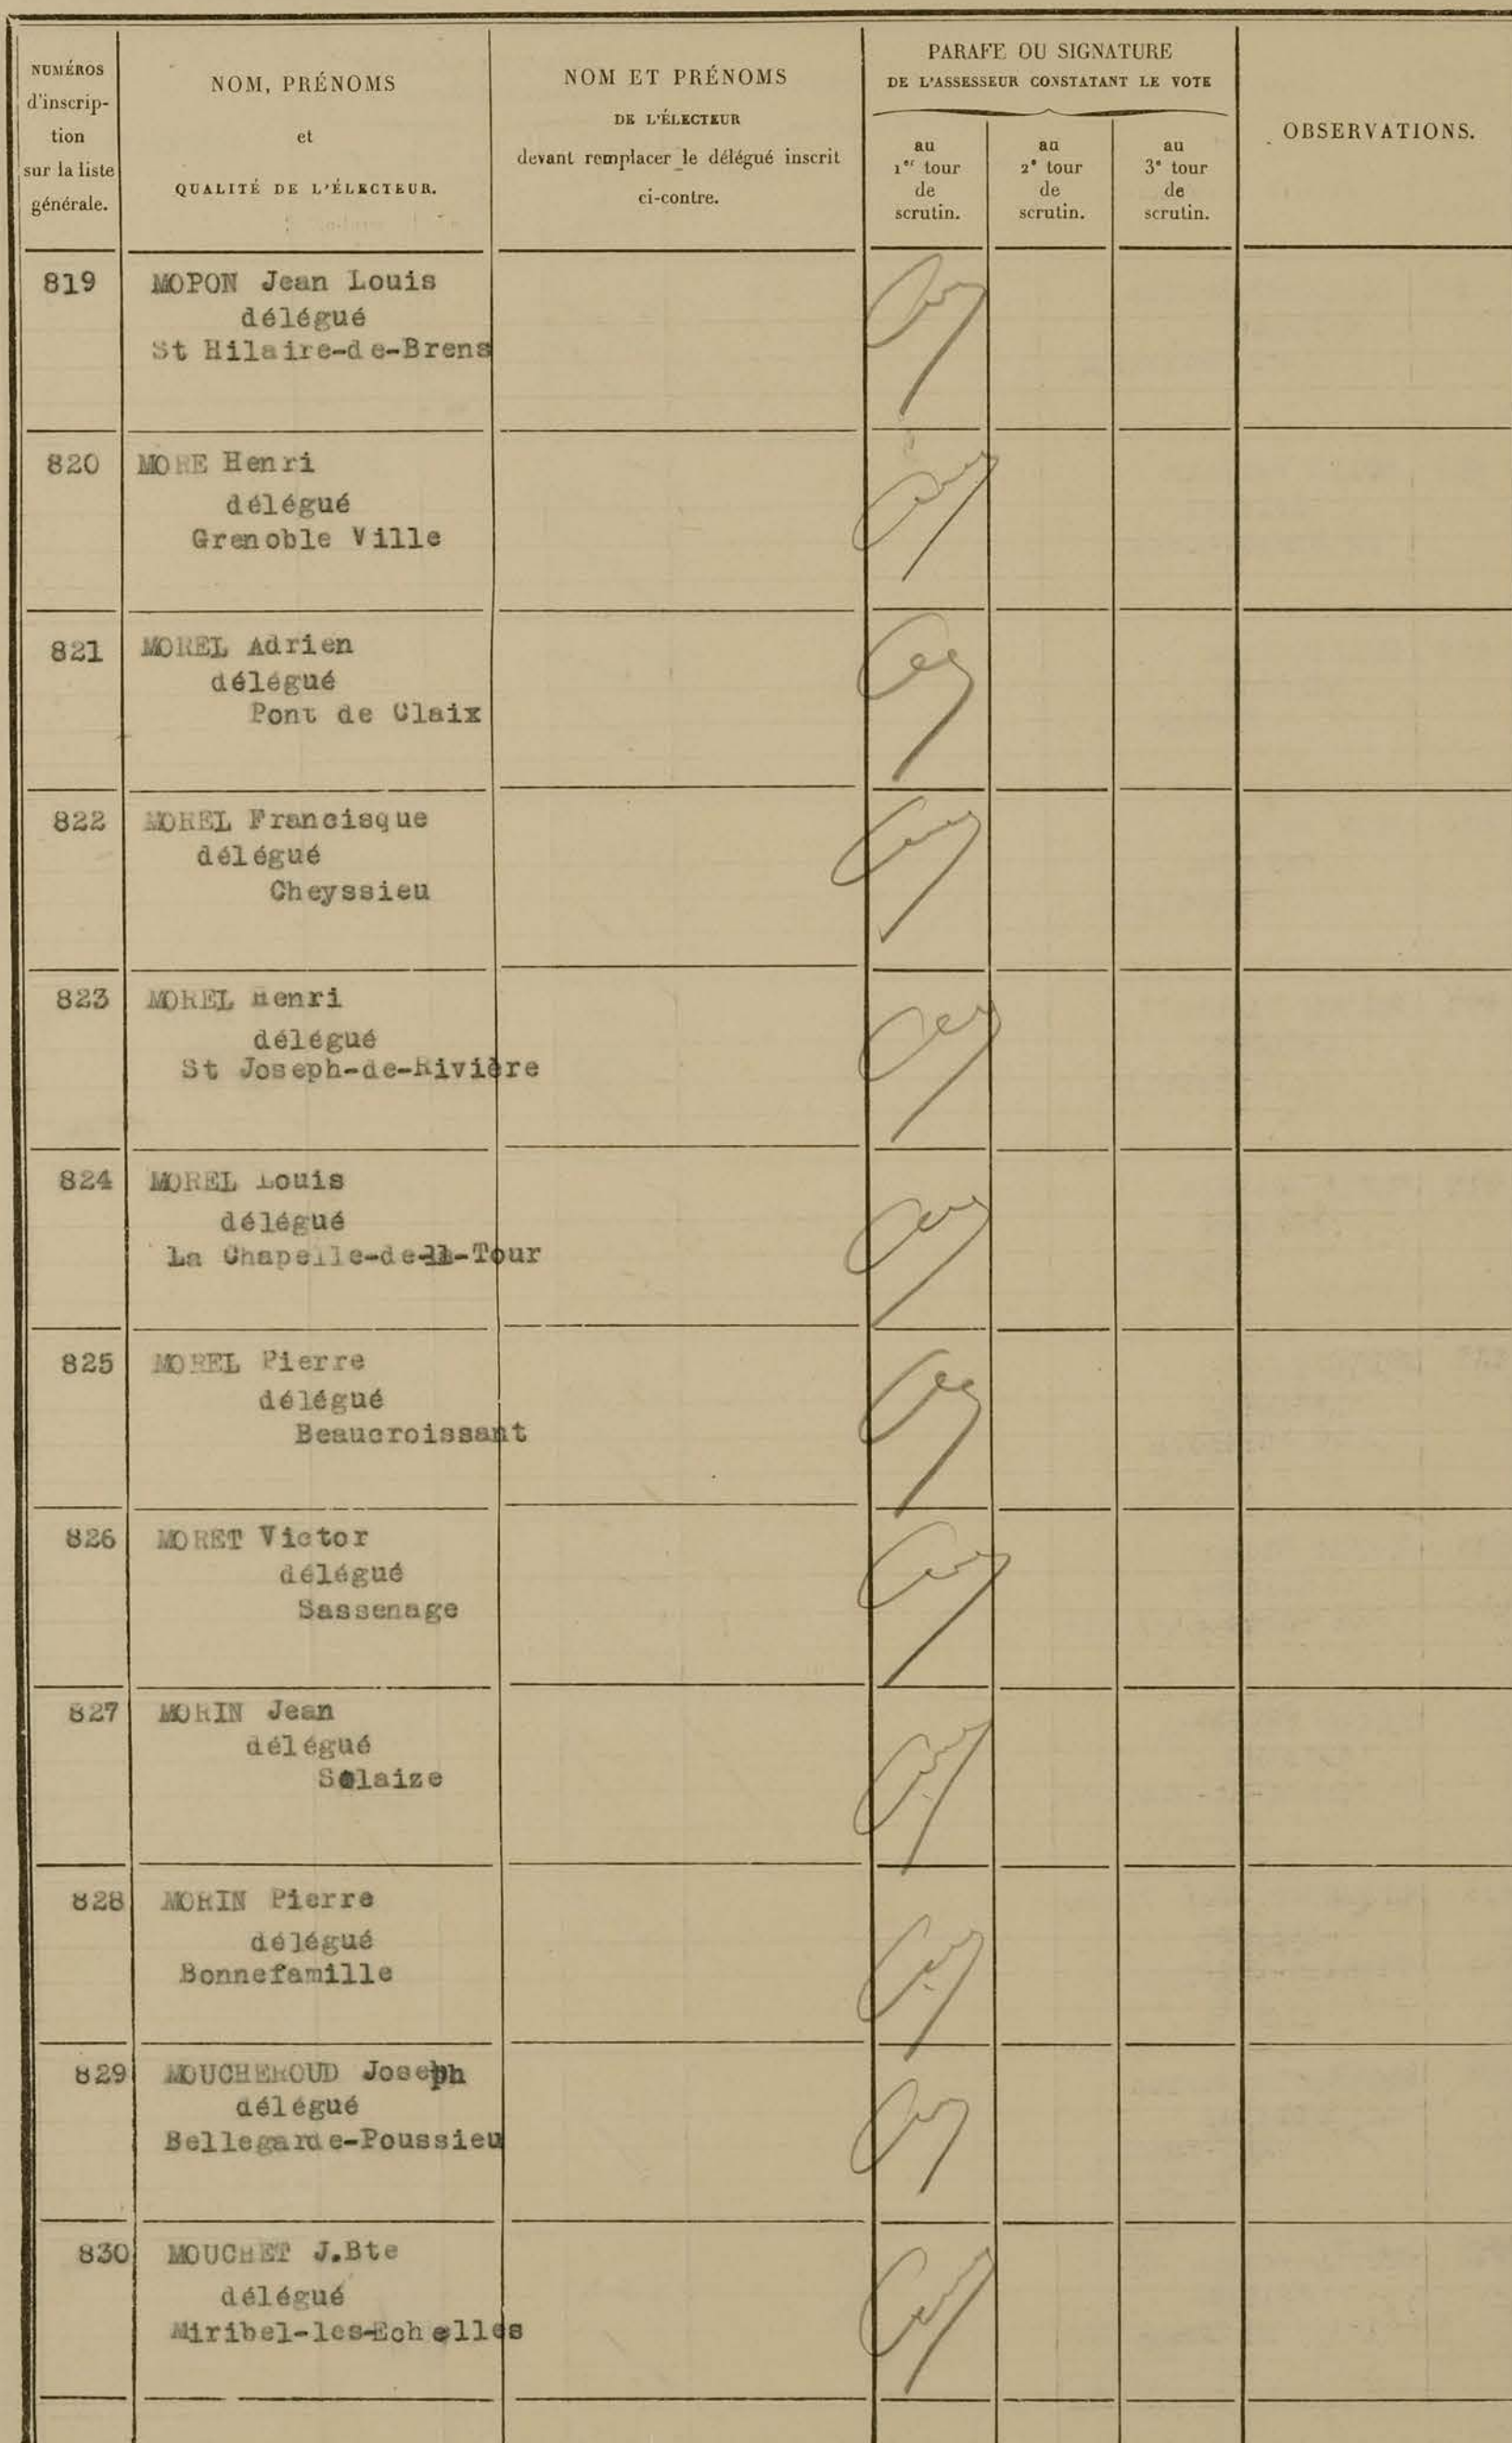 NUMÉROS
d'inscrip-
tion
sur la liste
générale.
NOM, PRÉNOMS
et
QUALITÉ DE L'ÉLECTEUR.
NOM ET PRÉNOMS
DE L'ÉLECTEUR
devant remplacer le délégué inscrit
ci-contre.
PARAFE OU SIGNATURE
DE L'ASSESSEUR CONSTATANT LE VOTE
au
1er tour
de
scrutin.
au
2e tour
de
scrutin.
au
3e tour
de
scrutin.
OBSERVATIONS.
819 MOPON Jean Louis
délégué
St Hilaire-de-Brens
820 MORE Henri
délégué
Grenoble Ville
821 MOREL Adrien
délégué
Pont de Claix
822 MOREL Francisque
délégué
Cheyssieu
823 MOREL Henri
délégué
St Joseph-de-Rivière
824 MOREL Louis
délégué
La Chapelle-de-la-Tour
825 MOREL Pierre
délégué
Beaucroissant
826 MORET Victor
délégué
Sassenage
827 MORIN Jean
délégué
Solaize
828 MORIN Pierre
délégué
Bonnefamille
829 MOUCHEROUD Joseph
délégué
Bellegarde-Poussieu
830 MOUCHET J.Bte
délégué
Miribel-les-Echelles